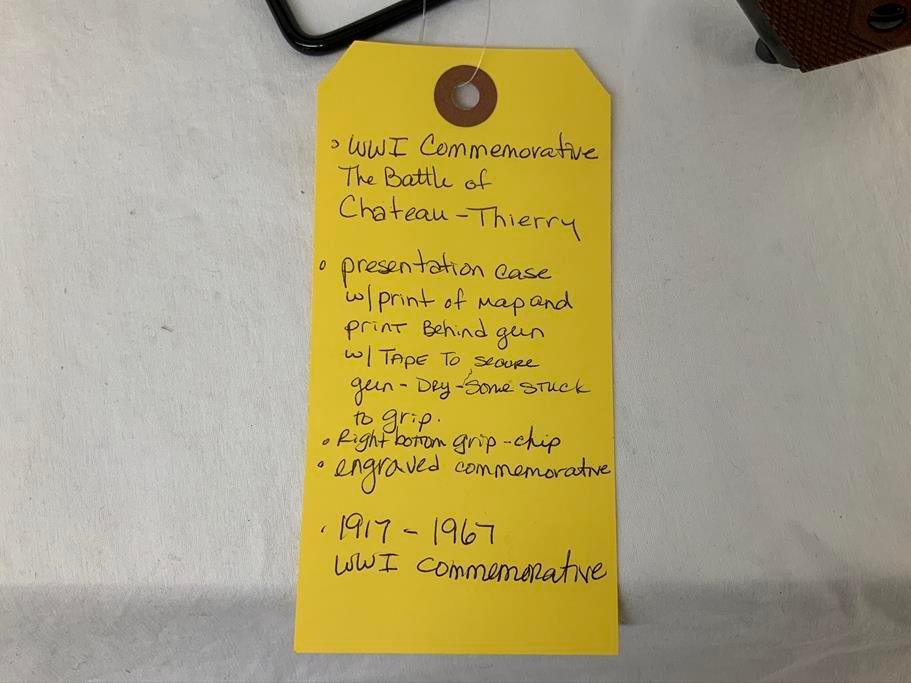 • WWI Commemorative
The Battle of
Chateau-Thierry
• presentation case
w/print of map and
print Behind gun
w/ TAPE TO secure
gun - Dry - Some STUCK
to grip.
• Right bottom grip - chip
• engraved commemorative
• 1917 - 1967
WWI commemorative